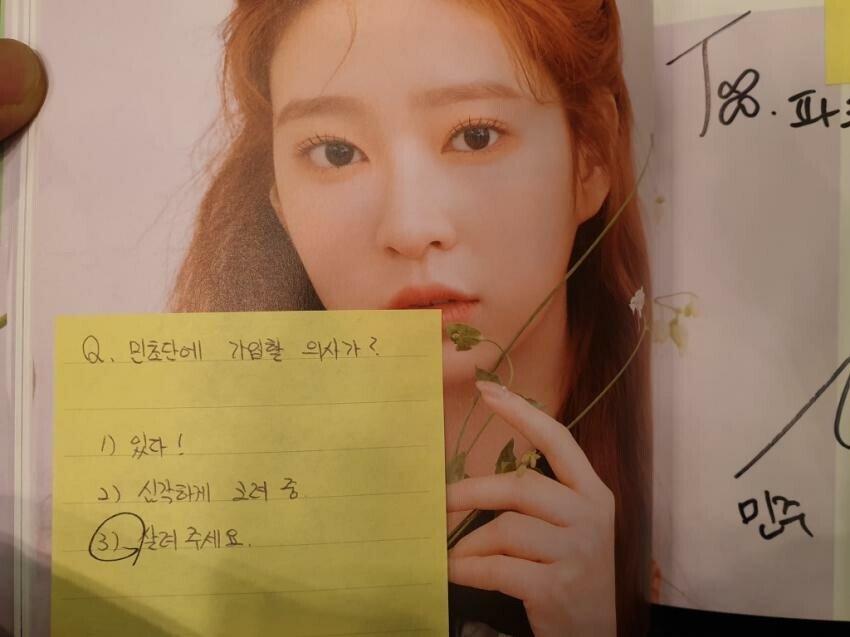 Q. 민초단에 가입할 의사가?
1) 있다!
2) 심각하게 고려 중.
3) 살려주세요.
To.
민주